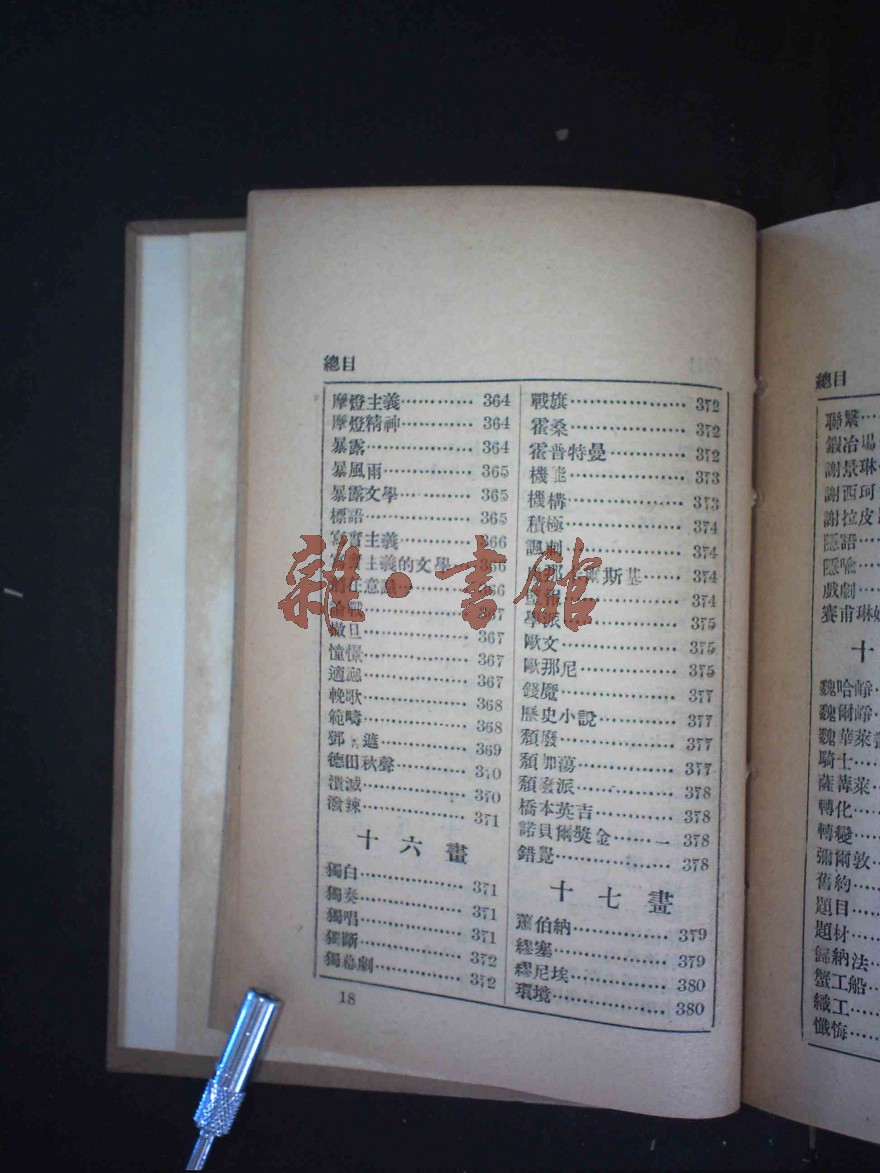 總目
摩燈主義………… 364
摩燈精神………… 364
暴露………… 364
暴風雨………… 365
暴露文學………… 365
標語………… 365
寫實主義………… 366
寫實主義的文學… 366
366
367
撒旦………… 367
憧憬………… 367
適應………… 367
輓歌………… 368
範疇………… 368
鄧 遮………… 369
德田秋聲………… 370
潰滅………… 370
潑辣………… 371
十六畫
獨白………… 371
獨奏………… 371
獨唱………… 371
獨斷………… 372
獨幕劇………… 372
18
戰旗………… 372
霍桑………… 372
霍普特曼………… 372
機能………… 373
機構………… 373
積極………… 374
諷刺………… 374
斯基…… 374
374
學派………… 375
歐文………… 375
歐那尼………… 375
錢魔………… 377
歷史小說………… 377
頹廢………… 377
頹加蕩………… 377
頹廢派………… 378
橋本英吉………… 378
諾貝爾獎金……… 378
錯覺………… 378
十七畫
蕭伯納………… 379
繆塞………… 379
繆尼埃………… 380
環境………… 380
總目
聯繫…
鍛冶場
謝景琳
謝西珂
謝拉皮
隱語…
隱喻…
戲劇…
賽甫琳娜
十
魏哈崢…
魏爾崢…
魏華萊
騎士…
薩冓萊…
轉化…
轉變…
彌爾敦…
舊約…
題目…
題材…
歸納法…
蟹工船…
織工…
懺悔…
雜·書館